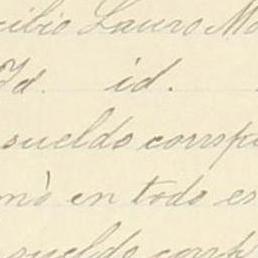 cilio Lauro Mo
Id. id.
sueldo corrsp
mò en todo es
sueldo corrsp